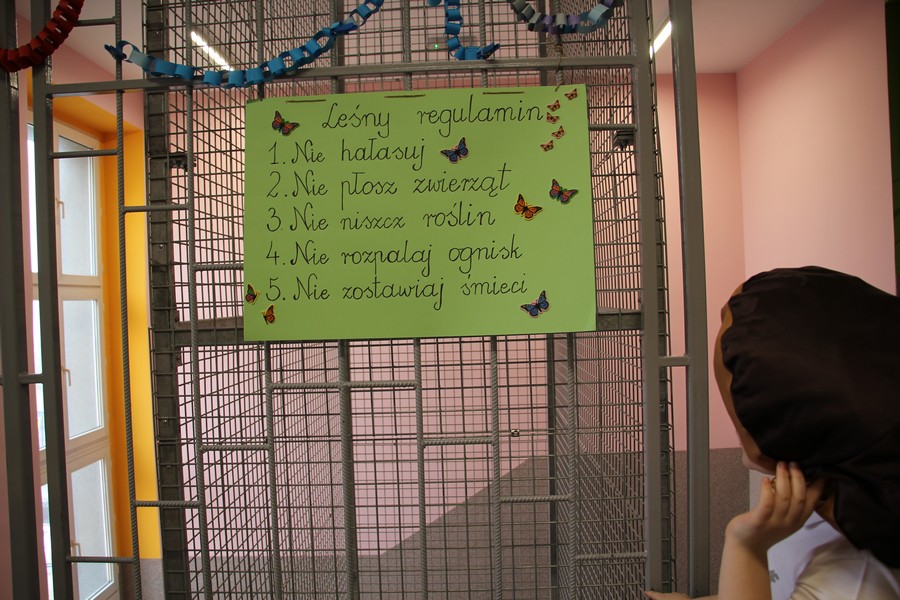 Leśny regulamin
1. Nie hałasuj
2. Nie płosz zwierząt
3. Nie niszcz roślin
4. Nie rozpalaj ognisk
5. Nie zostawiaj śmieci